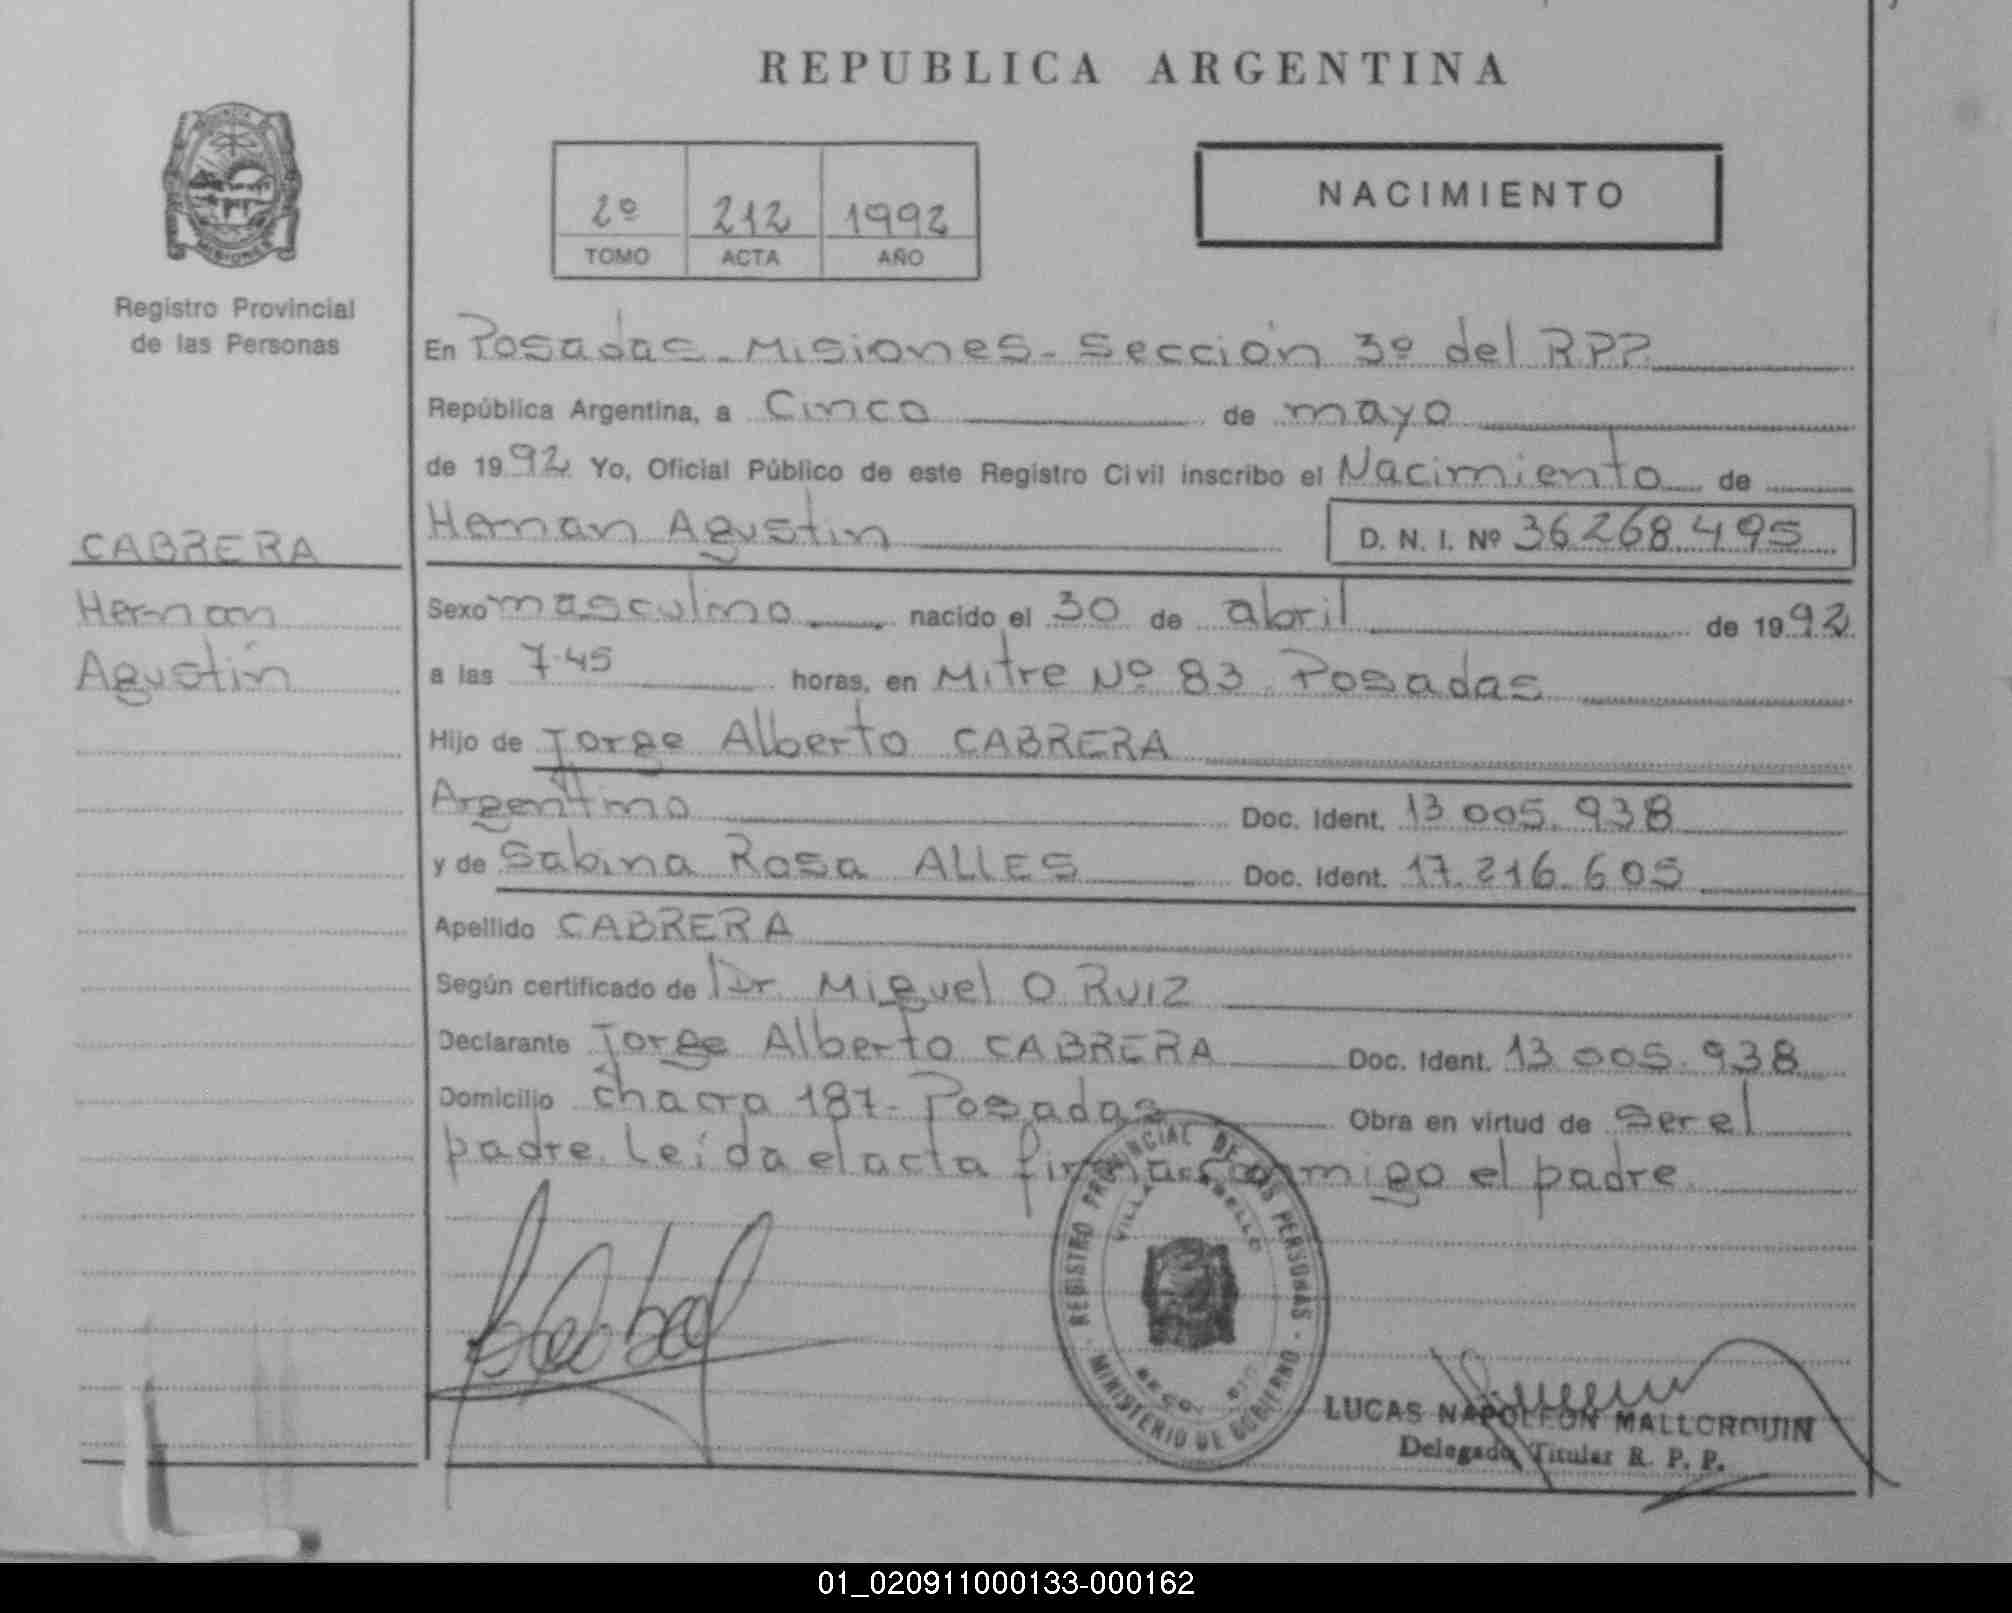 REPUBLICA ARGENTINA
NACIMIENTO
2º 212 1992
TOMO ACTA AÑO
Registro Provincial
de las Personas
CABRERA
Hernan
Agustín
En Posadas - Misiones - Sección 3º del RPP.
República Argentina, a Cinco de mayo
de 1992 Yo, Oficial Público de este Registro Civil inscribo el Nacimiento de
Hernan Agustin D. N. I. Nº 36.268.495
Sexo masculino nacido el 30 de abril de 1992
a las 7.45 horas, en Mitre Nº 83. Posadas
Hijo de Jorge Alberto CABRERA
Argentino Doc. Ident. 13.005.938
y de Sabina Rosa ALLES Doc. Ident. 17.216.605
Apellido CABRERA
Según certificado de Dr. Miguel O. Ruiz
Declarante Jorge Alberto CABRERA Doc. Ident. 13.005.938
Domicilio chacra 187 - Posadas Obra en virtud de ser el
padre. Leída el acta firma conmigo el padre.
REGISTRO PROVINCIAL DE LAS PERSONAS
VILLA CABELLO
MINISTERIO DE GOBIERNO
LUCAS NAPOLEON MALLORQUIN
Delegado Titular R. P. P.
01_020911000133-000162